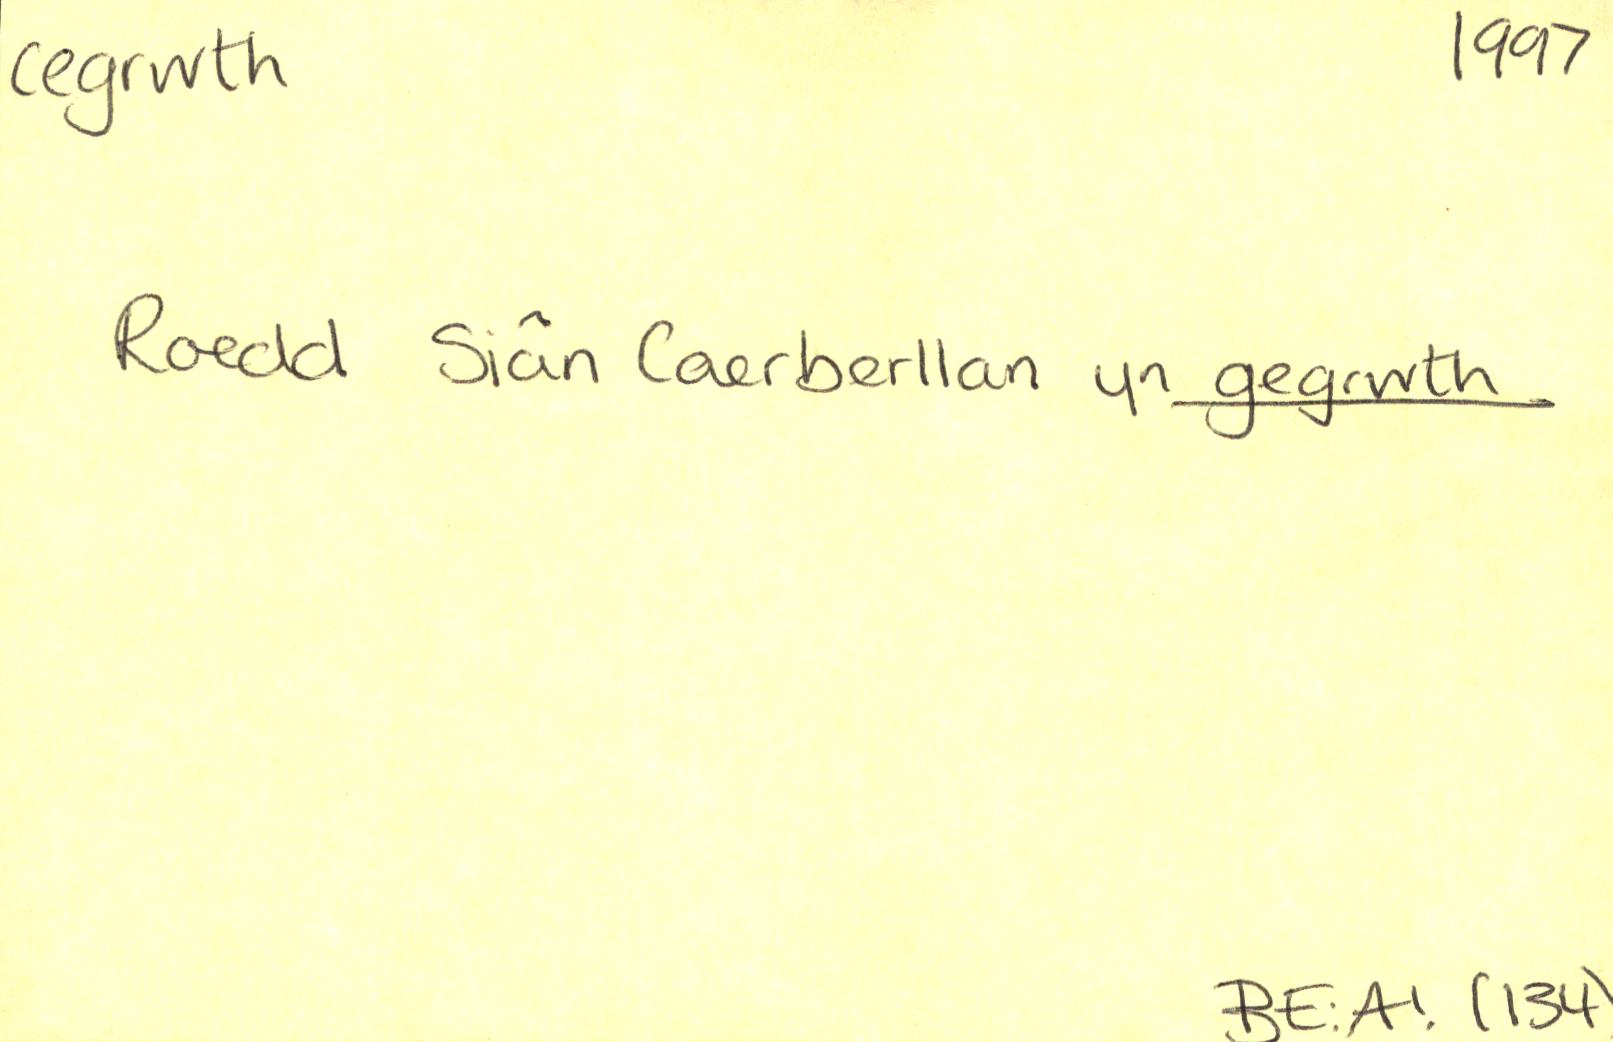 cegrwth 1997
Roedd Siân Caerberllan yn gegrwth
BE:A!. (134)